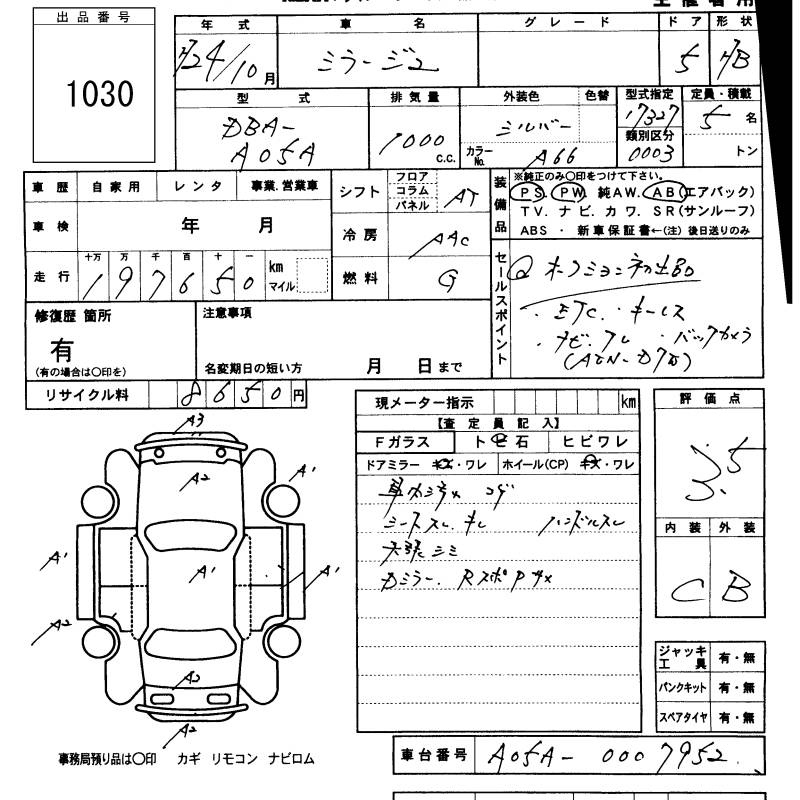 出品番号
1030
年式 車名 グレード ドア 形状
H24/10月 ミラージュ 5 H/B
型式 排気量 外装色 色替 型式指定 定員・積載
DBA-A05A 1000 c.c. シルバー 17327 5名
カラーNo. A66 類別区分 0003 トン
車歴 自家用 レンタ 事業.営業車
シフト フロア コラム パネル AT
装備品 ※純正のみ〇印をつけて下さい。
PS. PW. 純AW. AB(エアバック)
TV. ナビ. カワ. SR(サンルーフ)
ABS ・ 新車保証書←(注) 後日送りのみ
車検 年 月
冷房 AAC
走行 十万 万 千 百 十 一
197650 km マイル
燃料 G
セールスポイント
・ETC. ・キーレス
・ナビ. ・バックカメラ
修復歴 箇所
有
(有の場合は〇印を)
注意事項
名変期日の短い方 月 日まで
リサイクル料 8650円
現メーター指示 km
【査定員記入】
Fガラス トビ石 ヒビワレ
ドアミラー キズ・ワレ ホイール(CP) キズ・ワレ
シートスレ. ハンドルスレ
天張シミ
評価点
3.5
内装 外装
C B
A3
A2
A1
A1
A1
A1
A2
A2
A2
A2
ジャッキ工具 有・無
パンクキット 有・無
スペアタイヤ 有・無
事務局預り品は〇印 カギ リモコン ナビロム
車台番号 A05A-0007952